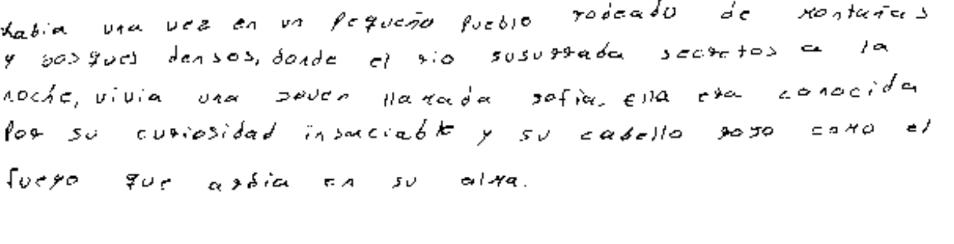 había una vez en un pequeño pueblo rodeado de montañas
y bosques densos, donde el rio susurraba secretos a la
noche, vivia una joven llamada sofia. Ella era conocida
Por su curiosidad insaciable y su cabello rojo como el
fuego que ardia en su alma.